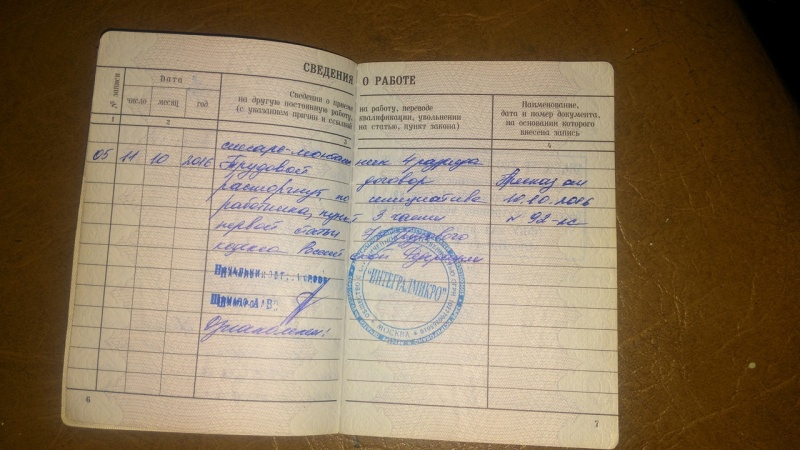 СВЕДЕНИЯ О РАБОТЕ
№ записи
Дата
число
месяц
год
Сведения о приеме на работу, переводе
на другую постоянную работу, квалификации, увольнении
(с указанием причин и ссылкой на статью, пункт закона)
Наименование,
дата и номер документа,
на основании которого
внесена запись
1 2 3 4
слесарь-механик 4 разряда
05 11 10 2016 Трудовой договор Приказ от
расторгнут по инициативе 10.10.2016
работника, пункт 3 части № 92-лс
первой статьи Трудового
кодекса Российской Федерации
"ИНТЕГРАЛМИКРО"
МОСКВА
Ознакомлен:
6
7